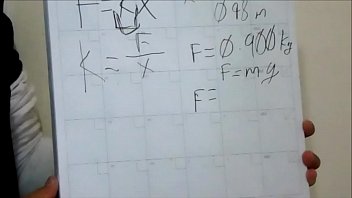 F=KX
098 m
K = F/X
F=0.900kg
F=mg
F=